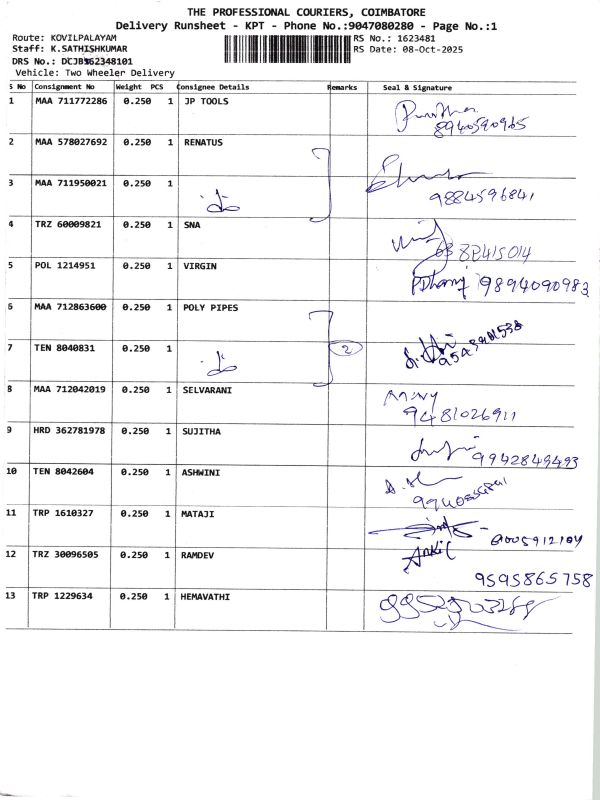 THE PROFESSIONAL COURIERS, COIMBATORE
Delivery Runsheet - KPT - Phone No.:9047080280 - Page No.:1
Route: KOVILPALAYAM RS No.: 1623481
Staff: K.SATHISHKUMAR RS Date: 08-Oct-2025
DRS No.: DCJB362348101
Vehicle: Two Wheeler Delivery
S No Consignment No Weight PCS Consignee Details Remarks Seal & Signature
1 MAA 711772286 0.250 1 JP TOOLS
8940590965
2 MAA 578027692 0.250 1 RENATUS
3 MAA 711950021 0.250 1
9884596841
4 TRZ 60009821 0.250 1 SNA
5 POL 1214951 0.250 1 VIRGIN 9894090983
6 MAA 712863600 0.250 1 POLY PIPES
7 TEN 8040831 0.250 1 2
8 MAA 712042019 0.250 1 SELVARANI
9481026911
9 HRD 362781978 0.250 1 SUJITHA
9942849493
10 TEN 8042604 0.250 1 ASHWINI
11 TRP 1610327 0.250 1 MATAJI
12 TRZ 30096505 0.250 1 RAMDEV Ankit
9595865758
13 TRP 1229634 0.250 1 HEMAVATHI